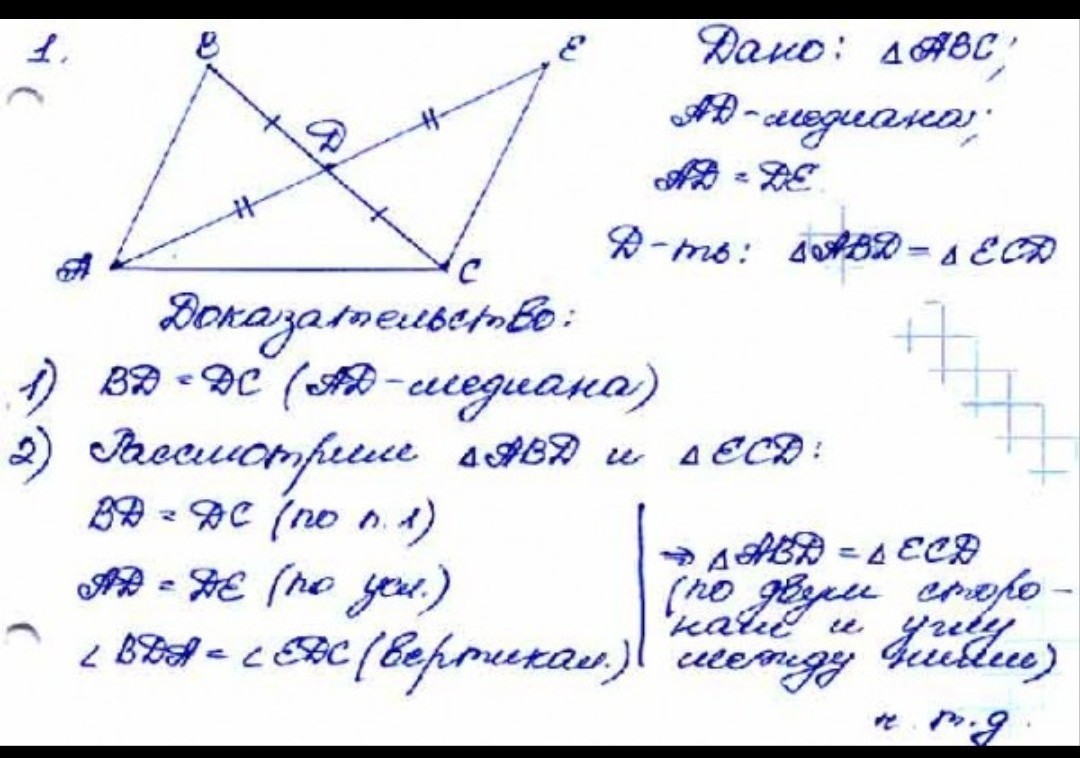 1.
B
E
D
A
C
Дано: △ABC;
AD-медиана;
AD = DE
Д-ть: △ABD = △ECD
Доказательство:
1) BD = DC (AD-медиана)
2) Рассмотрим △ABD и △ECD:
BD = DC (по п.1)
AD = DE (по усл.)
∠BDA = ∠EDC (вертикал.)
⇒ △ABD = △ECD
(по двум сторо-
нам и углу
между ними)
ч.т.д.